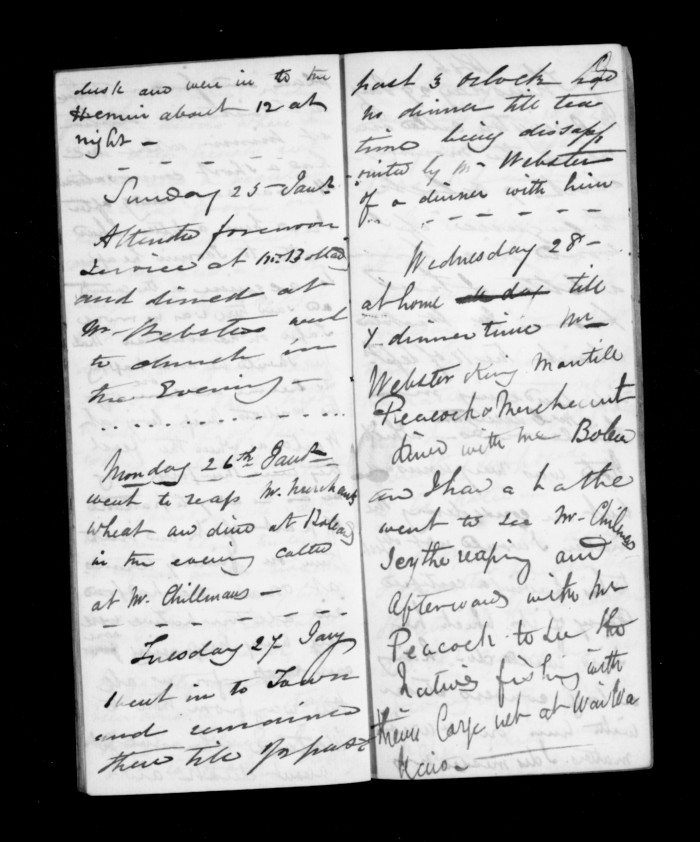 dusk and were in to the
Hermin about 12 at
night -
Sunday 25 - Jany
Attended forenoon
service at Mr
and dined at
Mr Websters went
to church in
the Evening -
Monday 26th Jany
went to reap Mr Murchants
wheat and dine at
in the evening called
at Mr. Chillmans -
Tuesday 27 Jany
went in to Town
and remained
there till past
past 3 oclock had
no dinner till tea
time being disapp
ointed by Mr Webster
of a dinner with him
Wednesday 28 -
at home till
dinner time Mr
Webster King Mantill
Peacock & Merchant
dined with me
and I had a bathe
went to see Mr Chilmas
Scythe reaping and
afterwards with Mr
Peacock to see the
Natives fishing with
their large net at